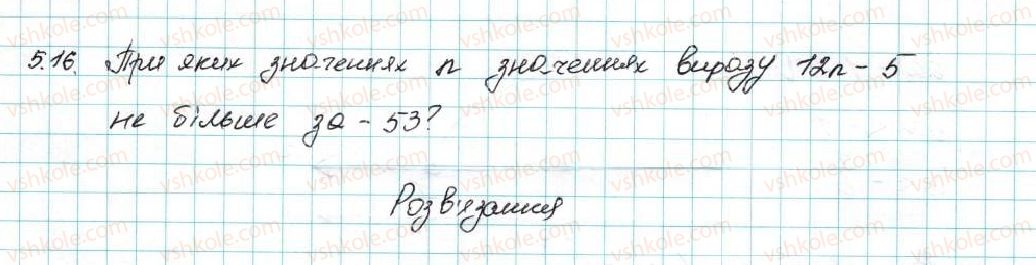 5.16. При яких значеннях n значеннях виразу 12n - 5
не більше за - 53?
Розв'язання